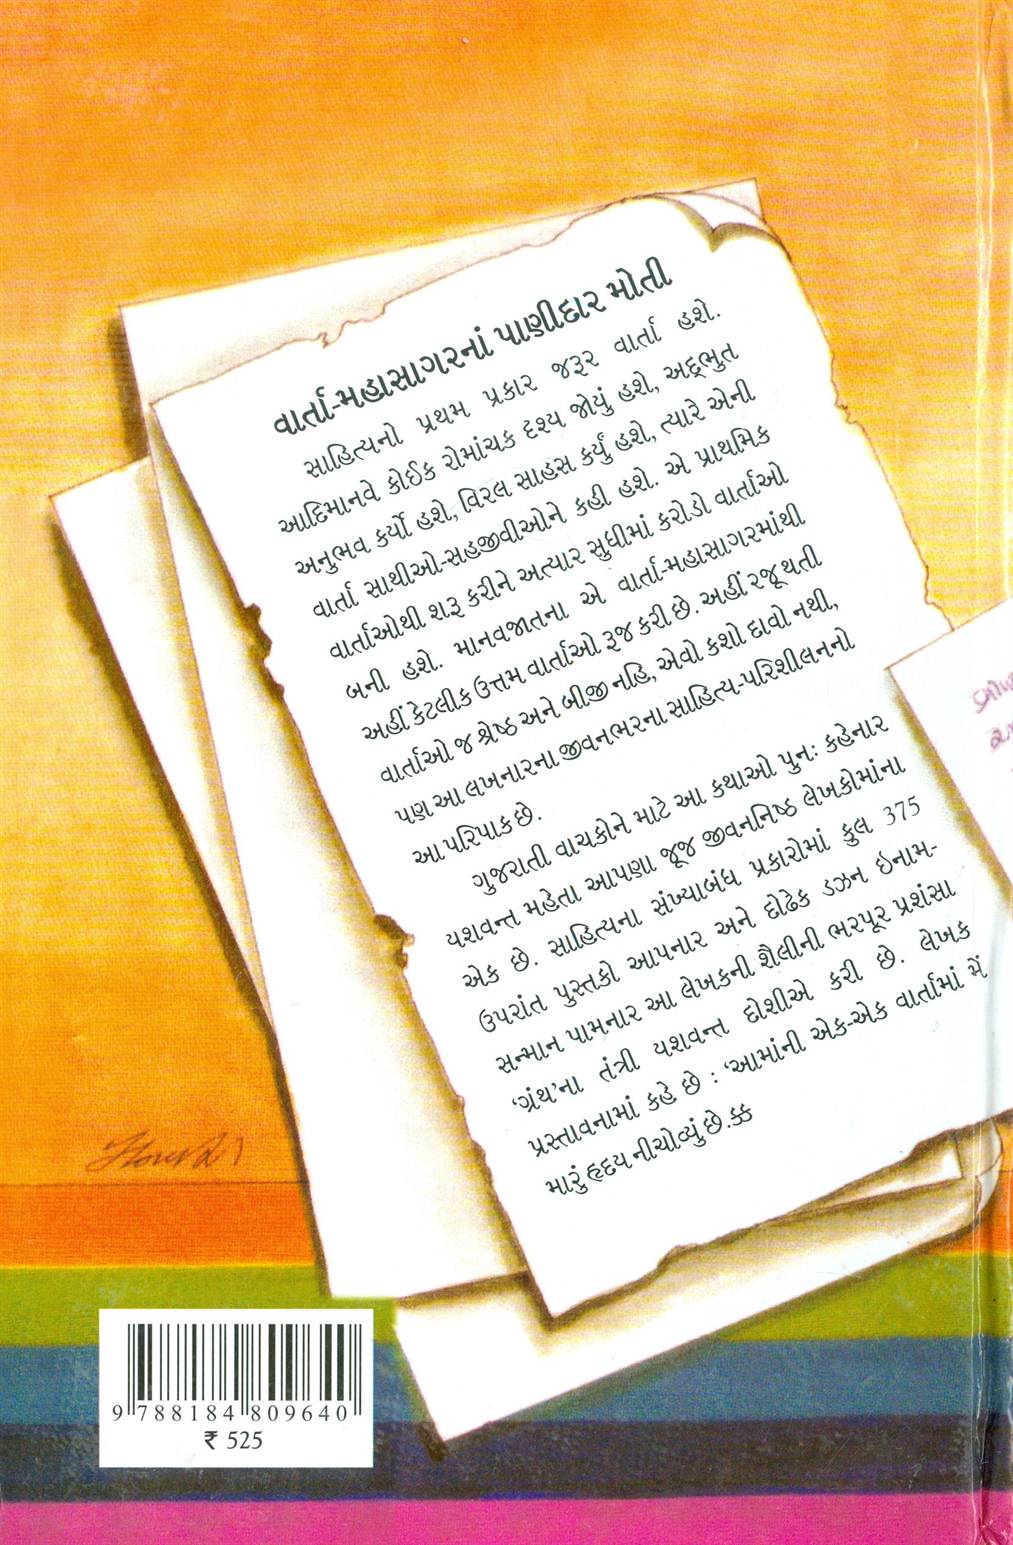 વાર્તા-મહાસાગરનાં પાણીદાર મોતી
સાહિત્યનો પ્રથમ પ્રકાર જરૂર વાર્તા હશે.
આદિમાનવે કોઈક રોમાંચક દૃશ્ય જોયું હશે, અદ્ભુત
અનુભવ કર્યો હશે, વિરલ સાહસ કર્યું હશે, ત્યારે એની
વાર્તા સાથીઓ-સહજીવીઓને કહી હશે. એ પ્રાથમિક
વાર્તાઓથી શરૂ કરીને અત્યાર સુધીમાં કરોડો વાર્તાઓ
બની હશે. માનવજાતના એ વાર્તા-મહાસાગરમાંથી
અહીં કેટલીક ઉત્તમ વાર્તાઓ રૂજ કરી છે. અહીં રજૂ થતી
વાર્તાઓ જ શ્રેષ્ઠ અને બીજી નહિ, એવો કશો દાવો નથી,
પણ આ લખનારના જીવનભરના સાહિત્ય-પરિશીલનનો
આ પરિપાક છે.
ગુજરાતી વાચકોને માટે આ કથાઓ પુનઃ કહેનાર
યશવન્ત મહેતા આપણા જૂજ જીવનનિષ્ઠ લેખકોમાંના
એક છે. સાહિત્યના સંખ્યાબંધ પ્રકારોમાં કુલ 375
ઉપરાંત પુસ્તકો આપનાર અને દોઢેક ડઝન ઇનામ-
સન્માન પામનાર આ લેખકની શૈલીની ભરપૂર પ્રશંસા
‘ગ્રંથ’ના તંત્રી યશવન્ત દોશીએ કરી છે. લેખક
પ્રસ્તાવનામાં કહે છે : ‘આમાંની એક-એક વાર્તામાં મેં
મારું હૃદય નીચોવ્યું છે.ક્ક
9 788184 809640
₹ 525